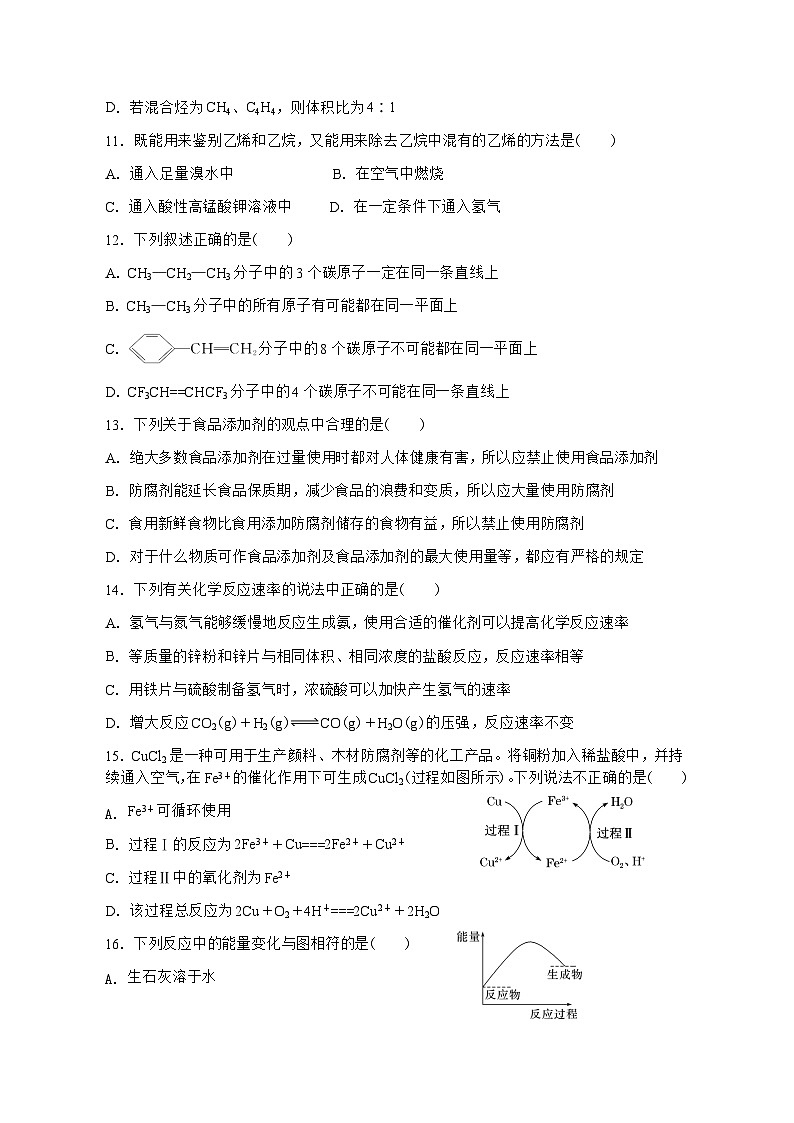 D．若混合烃为CH₄、C₄H₄，则体积比为4∶1
11．既能用来鉴别乙烯和乙烷，又能用来除去乙烷中混有的乙烯的方法是(　　)
A．通入足量溴水中　　B．在空气中燃烧
C．通入酸性高锰酸钾溶液中　　D．在一定条件下通入氢气
12．下列叙述正确的是(　　)
A．CH₃—CH₂—CH₃分子中的3个碳原子一定在同一条直线上
B．CH₃—CH₃分子中的所有原子有可能都在同一平面上
C．—CH═CH₂分子中的8个碳原子不可能都在同一平面上
D．CF₃CH==CHCF₃分子中的4个碳原子不可能在同一条直线上
13．下列关于食品添加剂的观点中合理的是(　　)
A．绝大多数食品添加剂在过量使用时都对人体健康有害，所以应禁止使用食品添加剂
B．防腐剂能延长食品保质期，减少食品的浪费和变质，所以应大量使用防腐剂
C．食用新鲜食物比食用添加防腐剂储存的食物有益，所以禁止使用防腐剂
D．对于什么物质可作食品添加剂及食品添加剂的最大使用量等，都应有严格的规定
14．下列有关化学反应速率的说法中正确的是(　　)
A．氢气与氮气能够缓慢地反应生成氨，使用合适的催化剂可以提高化学反应速率
B．等质量的锌粉和锌片与相同体积、相同浓度的盐酸反应，反应速率相等
C．用铁片与硫酸制备氢气时，浓硫酸可以加快产生氢气的速率
D．增大反应CO₂(g)＋H₂(g)⇌CO(g)＋H₂O(g)的压强，反应速率不变
15．CuCl₂是一种可用于生产颜料、木材防腐剂等的化工产品。将铜粉加入稀盐酸中，并持
续通入空气，在Fe³⁺的催化作用下可生成CuCl₂(过程如图所示)。下列说法不正确的是(　　)
A．Fe³⁺可循环使用
B．过程Ⅰ的反应为2Fe³⁺＋Cu===2Fe²⁺＋Cu²⁺
C．过程Ⅱ中的氧化剂为Fe²⁺
D．该过程总反应为2Cu＋O₂＋4H⁺===2Cu²⁺＋2H₂O
Cu　Fe³⁺　H₂O
过程Ⅰ　过程Ⅱ
Cu²⁺　Fe²⁺　O₂、H⁺
16．下列反应中的能量变化与图相符的是(　　)
A．生石灰溶于水
能量
生成物
反应物
反应过程